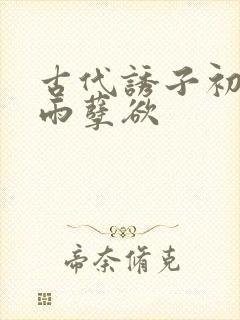 古代誘子初
雨孽欲
帝奈脩克